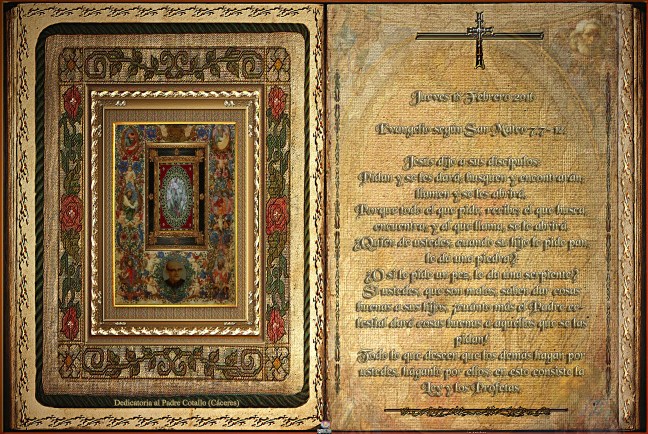 Dedicatoria al Padre Cotallo (Cáceres)
Jueves 18 Febrero 2016
Evangelio según San Mateo 7,7-12.
Jesús dijo a sus discípulos:
Pidan y se les dará, busquen y encontrarán,
llamen y se les abrirá.
Porque todo el que pide, recibe; el que busca,
encuentra; y al que llama, se le abrirá.
¿Quién de ustedes, cuando su hijo le pide pan,
le da una piedra?
¿O si le pide un pez, le da una serpiente?
Si ustedes, que son malos, saben dar cosas
buenas a sus hijos, ¡cuánto más el Padre ce-
lestial dará cosas buenas a aquellos que se las
pidan!
Todo lo que deseen que los demás hagan por
ustedes, háganlo por ellos: en esto consiste la
Ley y los Profetas.